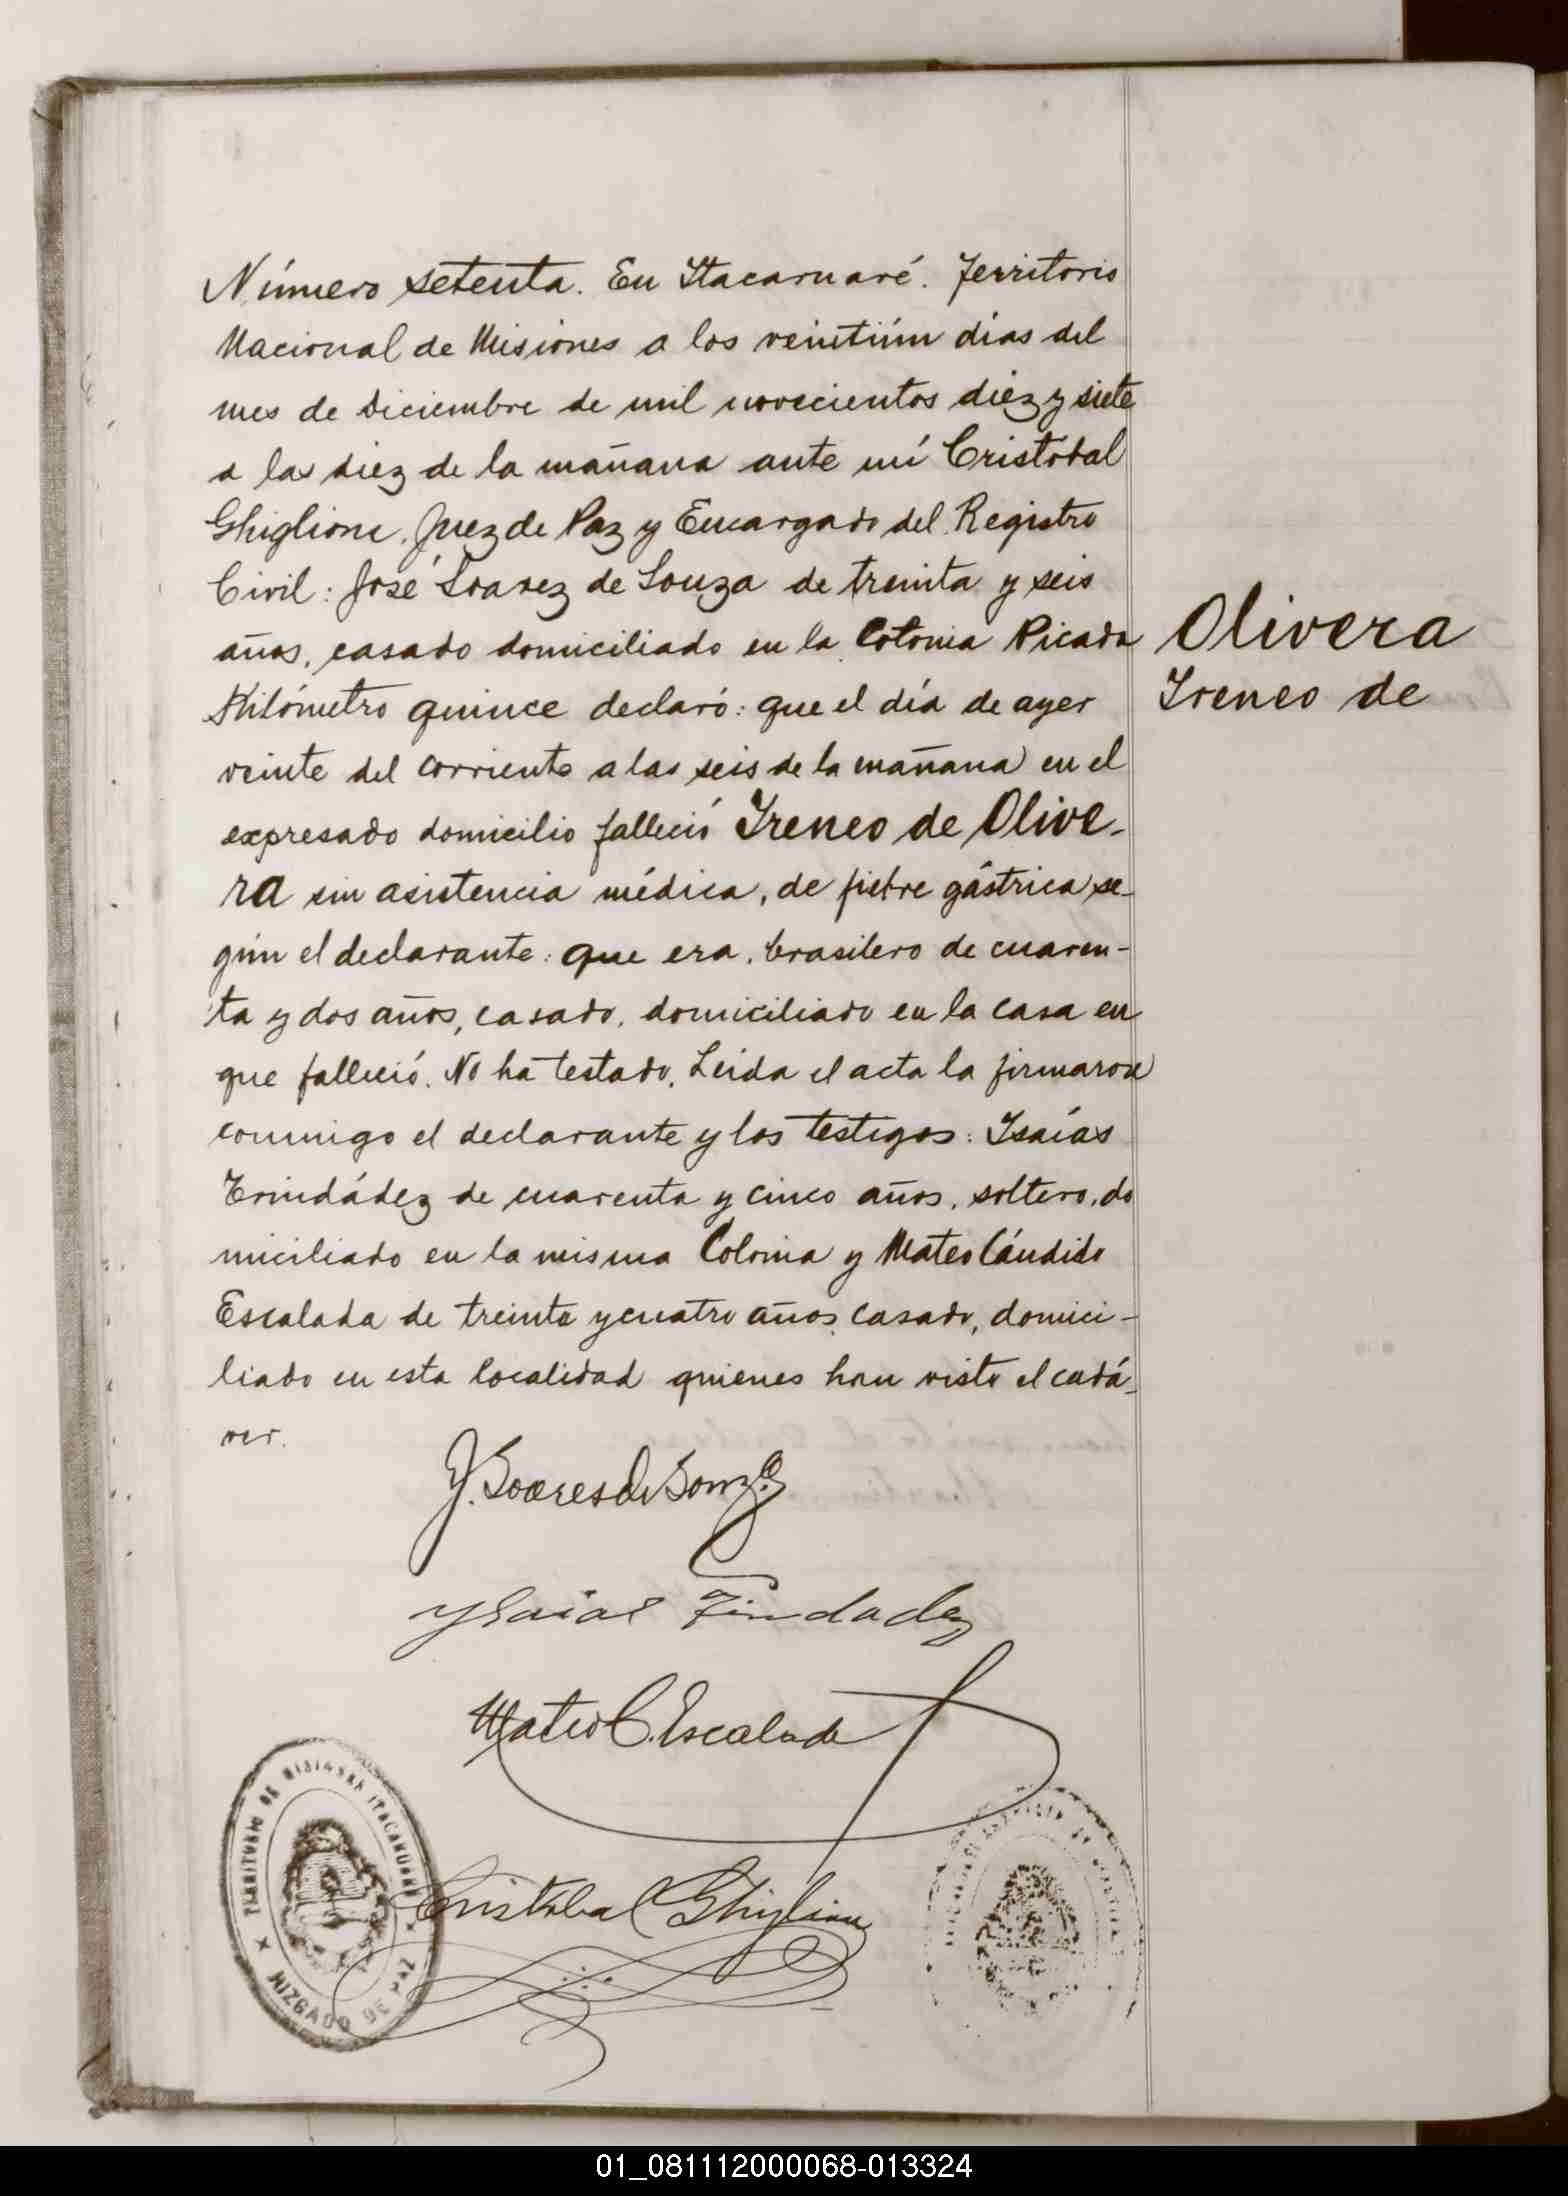 Número setenta. En Itacaruaré. Territorio
Nacional de Misiones a los veintiún días del
mes de Diciembre de mil novecientos diez y siete
a las diez de la mañana ante mí Cristóbal
Ghiglione, Juez de Paz y Encargado del Registro
Civil: José Soarez de Souza de treinta y seis
años, casado domiciliado en la Colonia Picada
Kilómetro quince declaró: que el día de ayer
veinte del corriente a las seis de la mañana en el
expresado domicilio falleció Ireneo de Olive-
ra sin asistencia médica, de fiebre gástrica se-
gún el declarante: que era, brasilero de cuaren-
ta y dos años, casado, domiciliado en la casa en
que falleció. No ha testado. Leída el acta la firmaron
conmigo el declarante y los testigos: Isaías
Trindádez de cuarenta y cinco años, soltero, do
miciliado en la misma Colonia y Mateo Cándido
Escalada de treinta y cuatro años, casado, domici-
liado en esta localidad quienes han visto el cadá-
ver.
Olivera
Ireneo de
J. Soares de Souza
Ysaias Tindadez
Mateo C. Escalada
Cristobal Ghiglione
TERRITORIO DE MISIONES ITACARUARE
JUZGADO DE PAZ
01_081112000068-013324